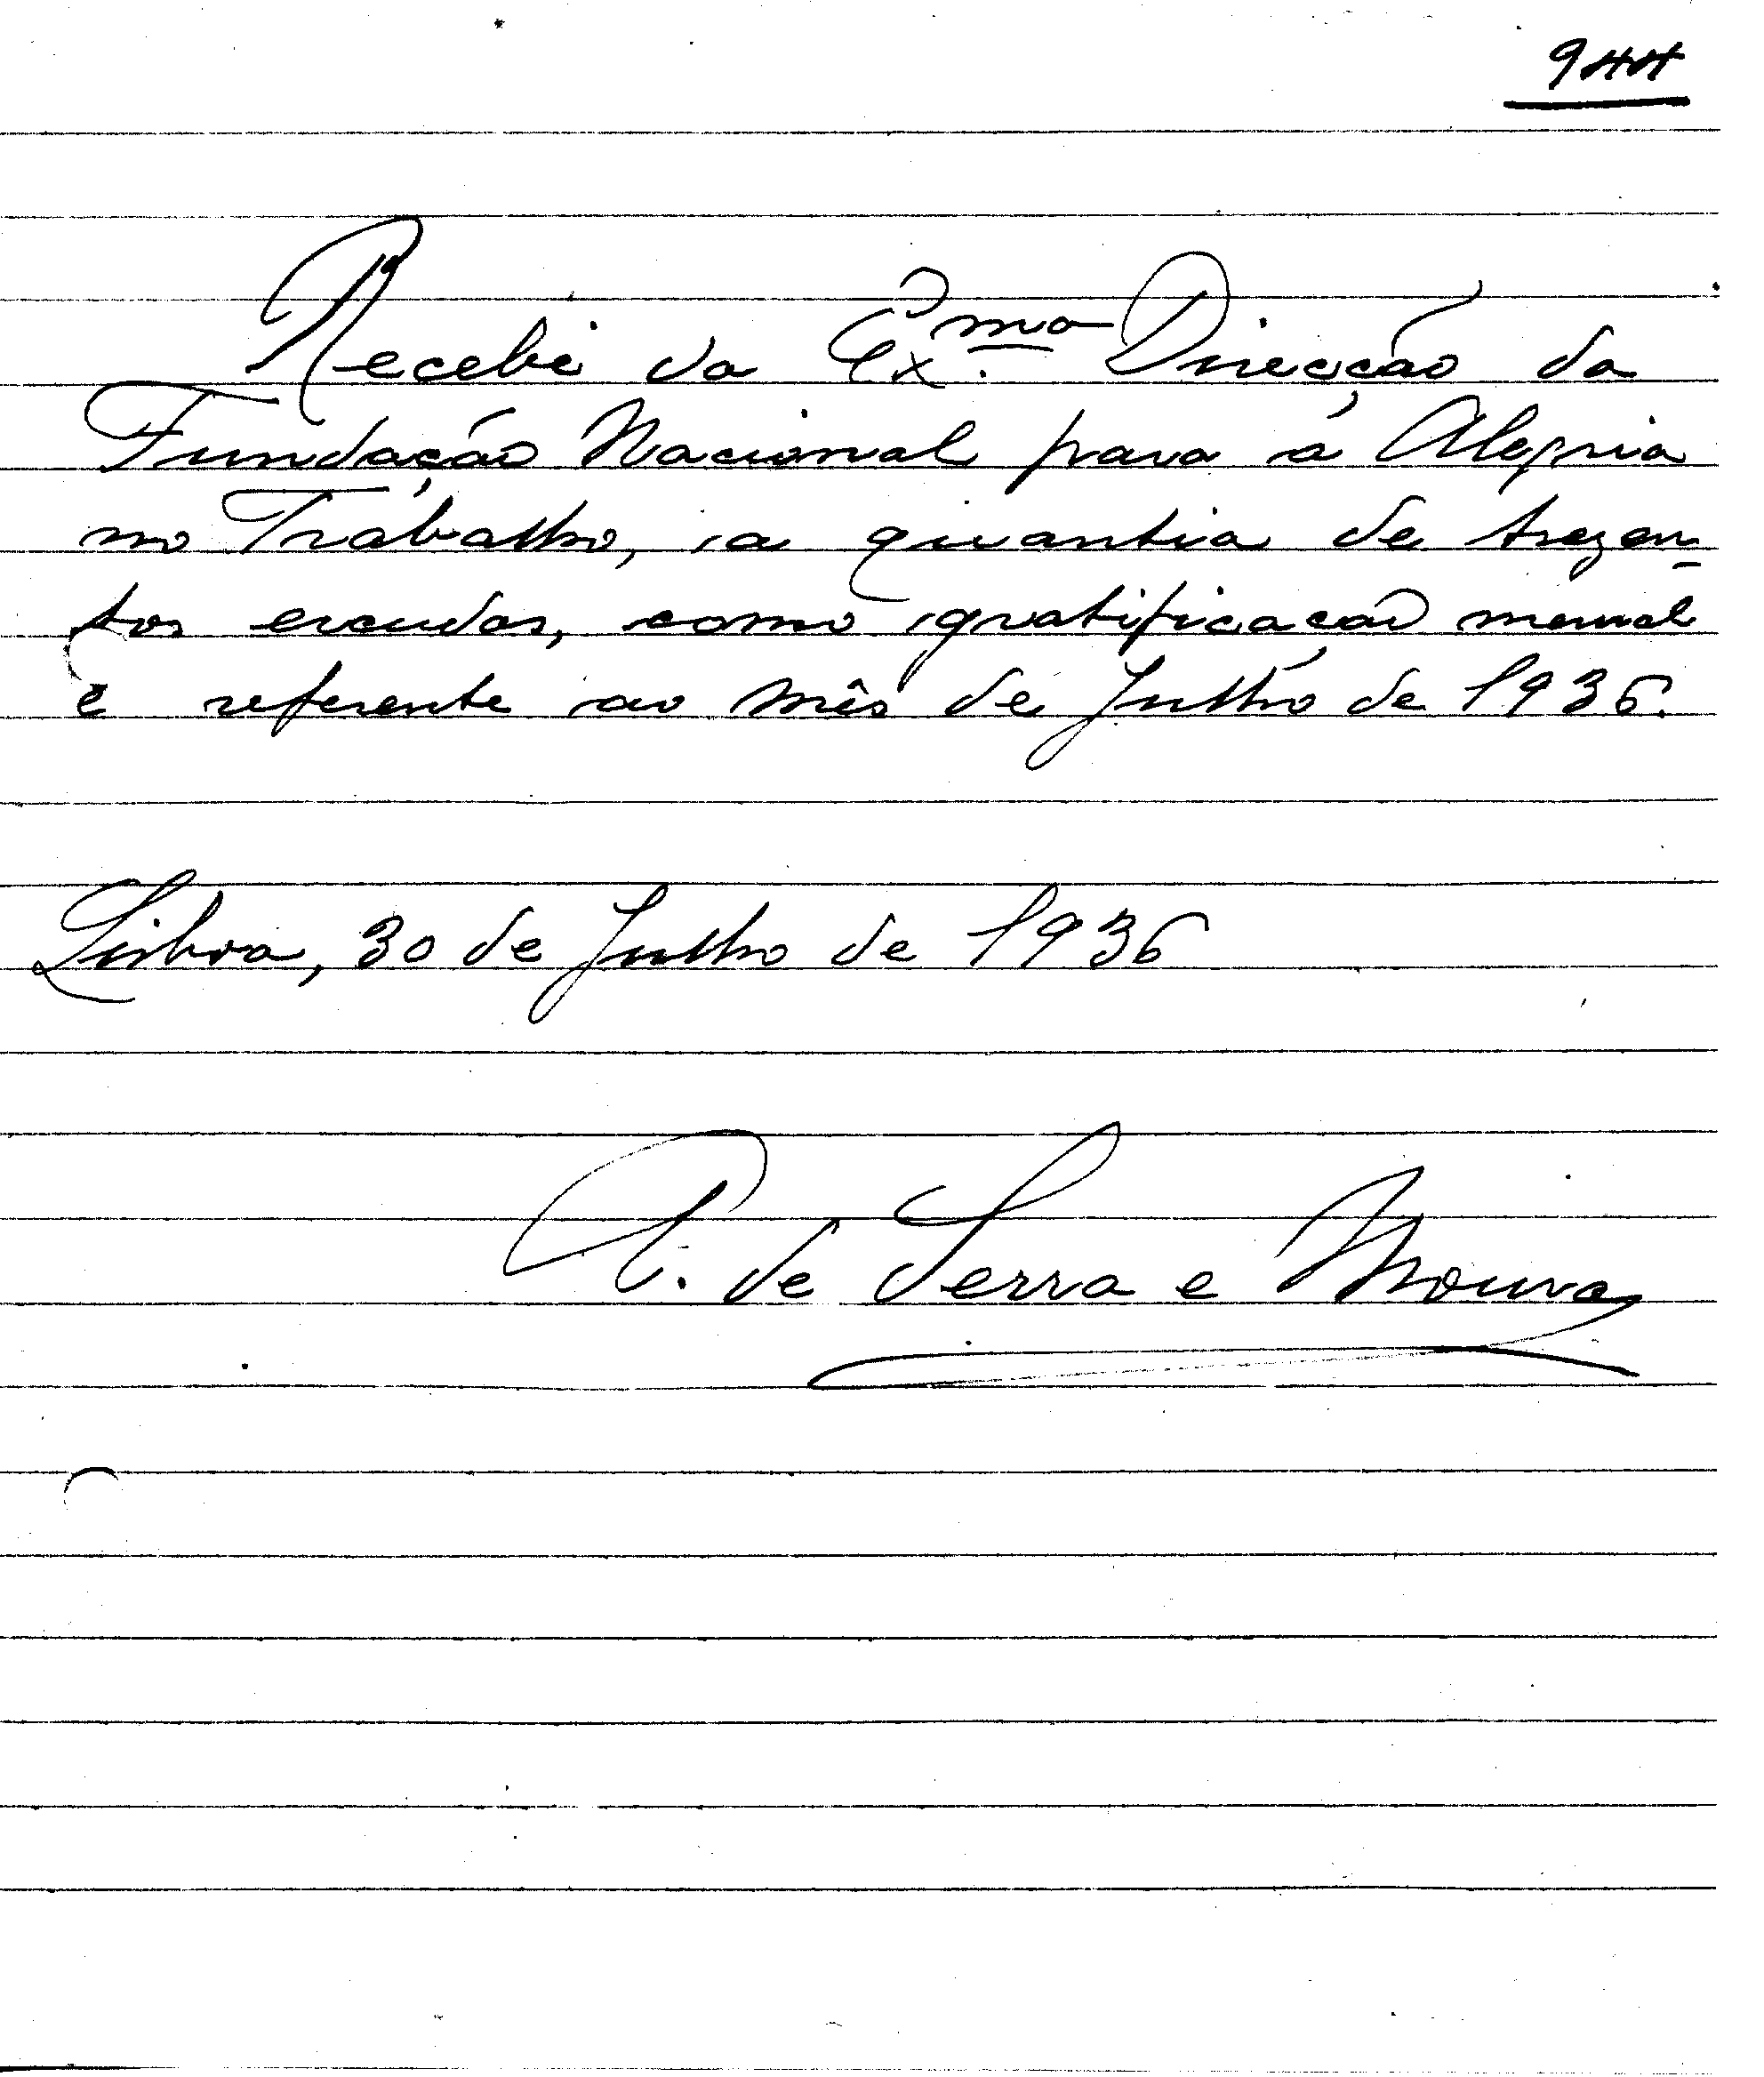 944
Recebi da Ex.ma Direcção da
Fundação Nacional para a Alegria
no Trabalho, a quantia de trezen-
tos escudos, como gratificação mensal
e referente ao mês de Julho de 1936.
Lisboa, 30 de Julho de 1936
R. de Serra e Moura